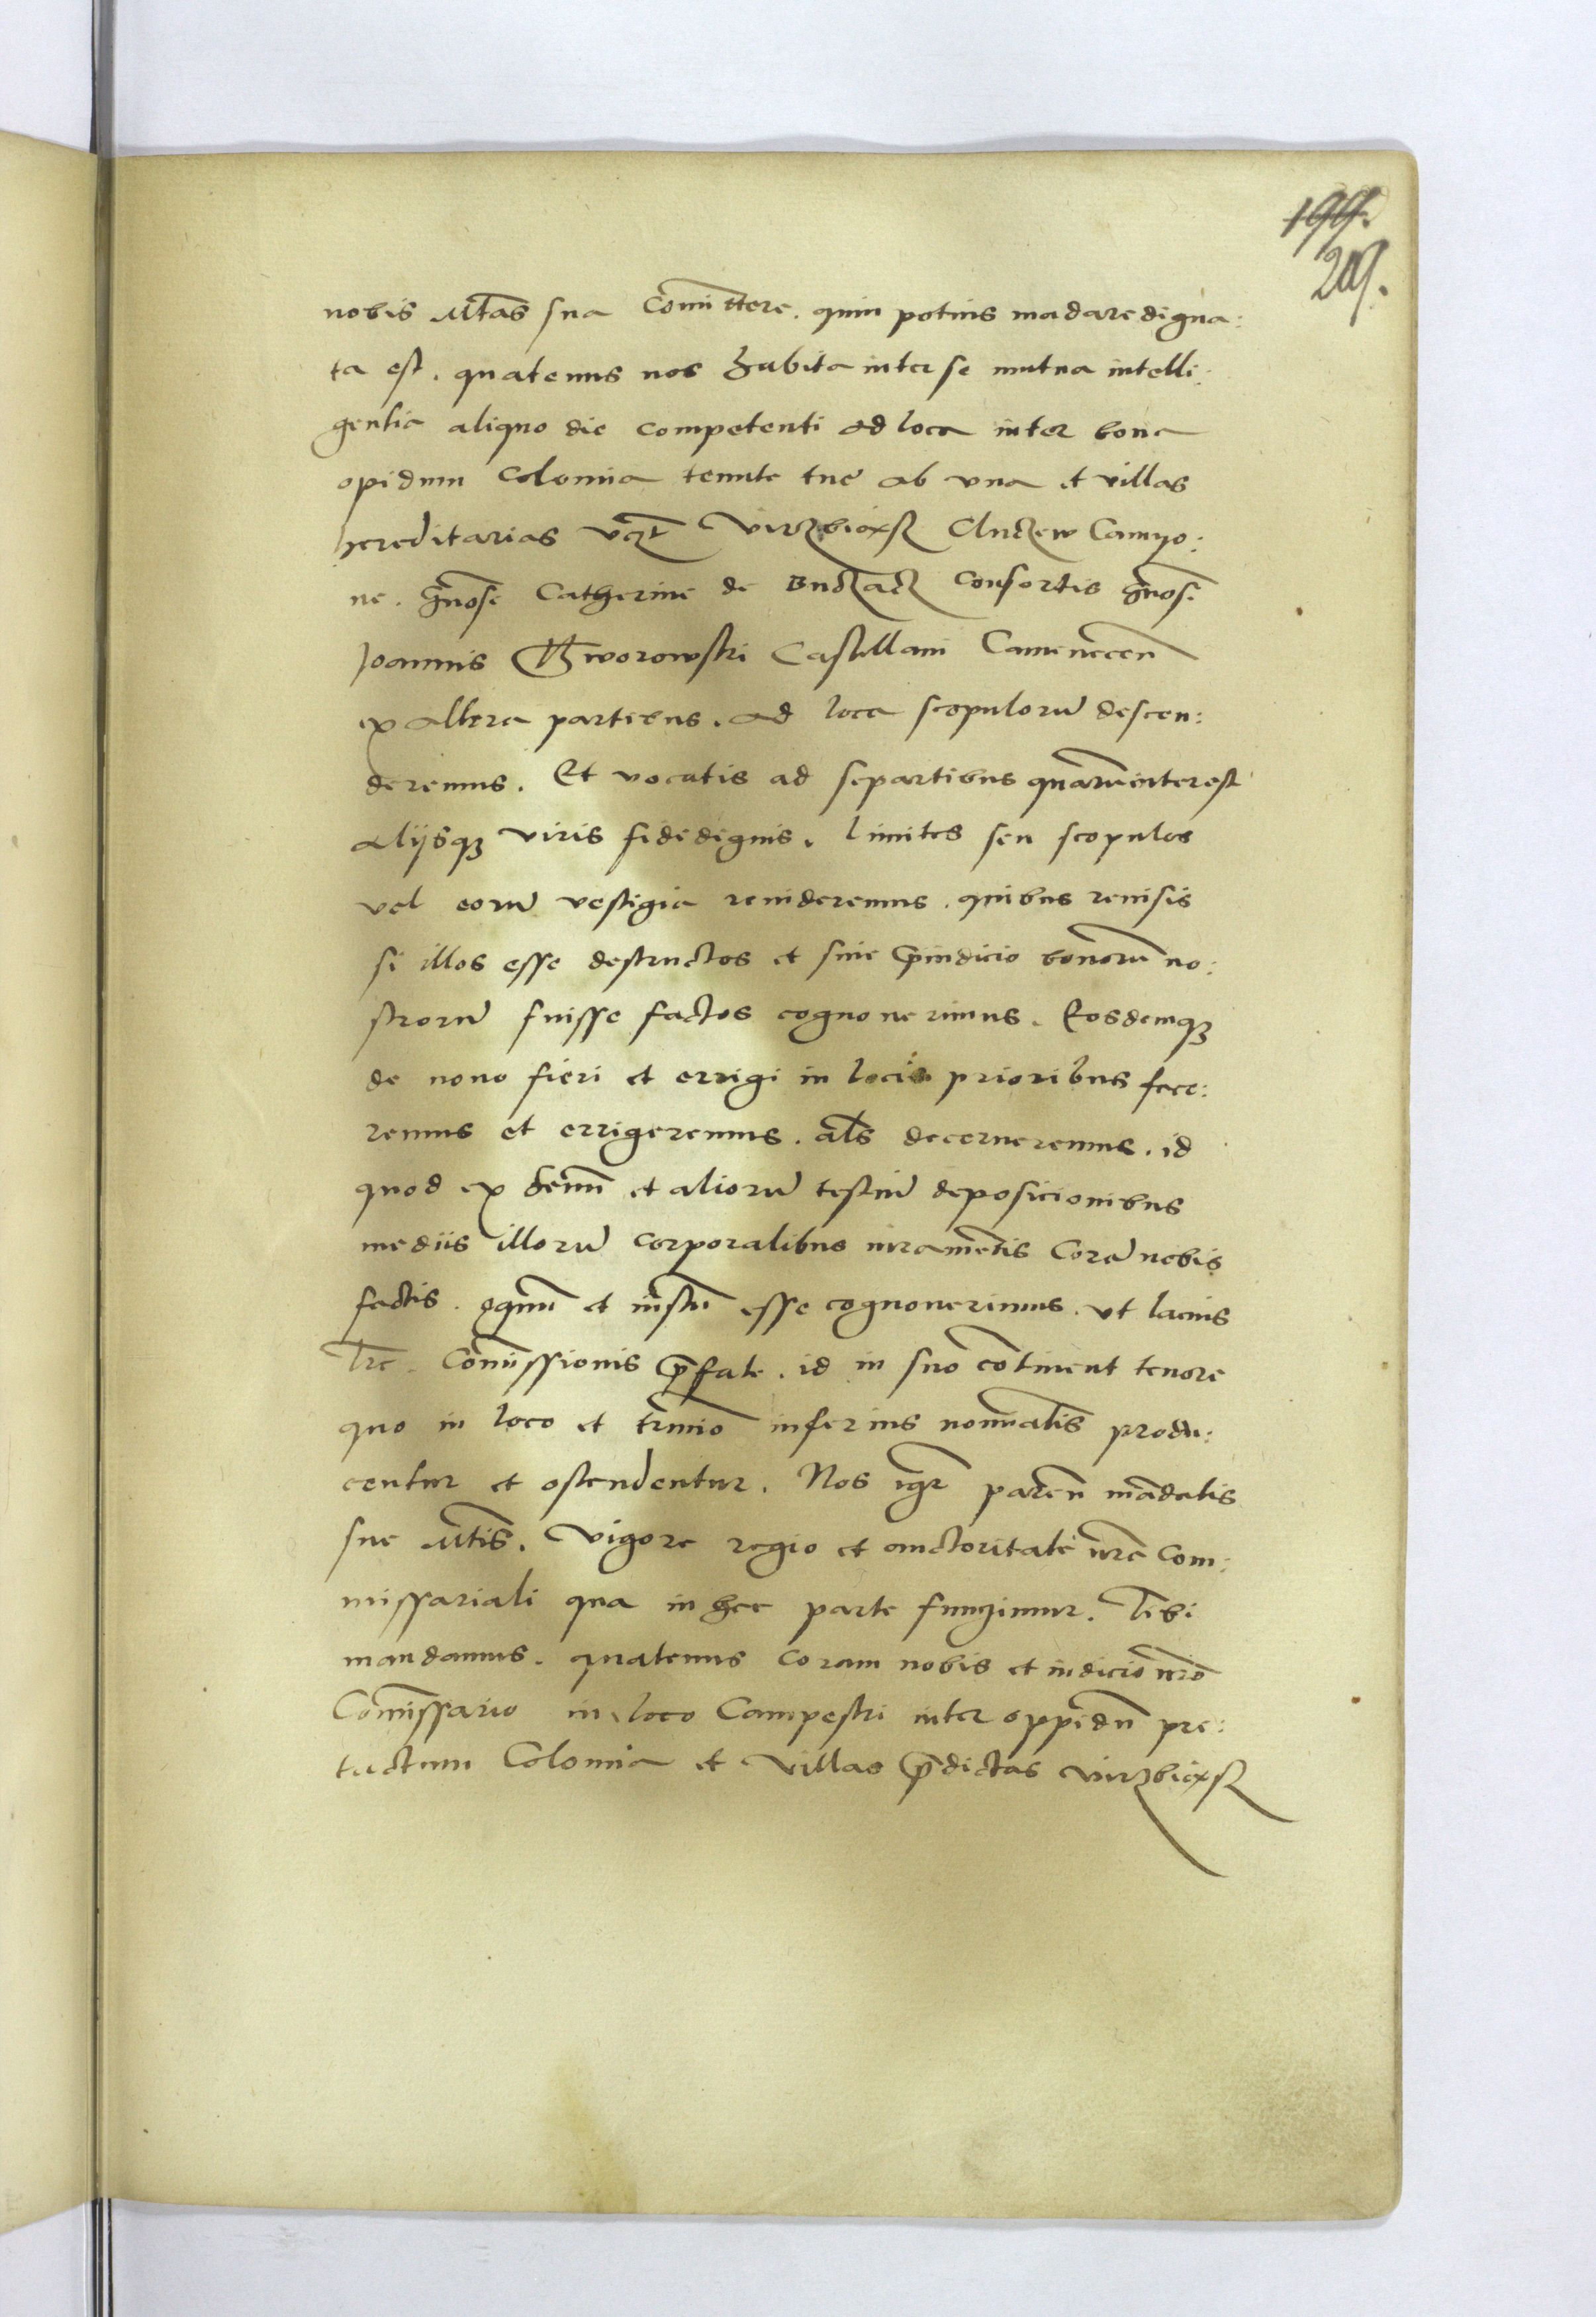 nobis Mtas sua Comittere. quin potius madare digna:
ta est. quatenus nos habita inter se mutua intelli:
gentia aliquo die competenti ad loca inter bona
opidum Colomia tenute tue ab vna et villas
hereditarias vczt Virzbiaxsz Cluczew Camyo:
ne. Gnose Catherine de Buczacz Consortis Gnosi
Joannis Tworowski Castellani Camenecen
ex altera partibus. ad loca scopulorum descen:
deremus. Et vocatis ad se partibus quarum interest
alijsqz viris fidedignis. limites seu scopulos
vel eorum vestigia revideremus. quibus revisis
si illos esse destructos et sine preiudicio bonorum no:
strorum fuisse factos cognoverimus. Eosdemqz
de novo fieri et errigi in locis prioribus face:
remus et errigeremus. als decerneremus. id
quod ex senum et aliorum testium deposicionibus
mediis illorum corporalibus iurametis Coram nobis
factis. equum et iustum esse cognoverimus. vt lacius
lre. Comissionis prefate. id in suo cotinent tenore
quo in loco et trmio inferius nominatis produ:
centur et ostendentur. Nos igr paren madatis
sue Mtis. Vigore regio et auctoritate nre Com:
missariali qua in hac parte fungimur. Tibi
mandamus. quatenus coram nobis et iudicio nro
Comissario in loco Campestri inter oppidum pre:
tactum Colomia et villas predictas Virzbiaxsz